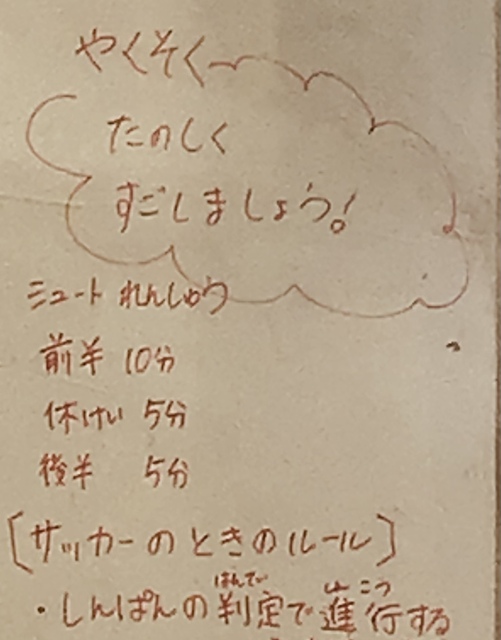 やくそく
たのしく
すごしましょう!
ミュート れんしゅう
前半 10分
休けい 5分
後半 5分
[サッカーのときのルール]
・しんぱんの判定で進行する